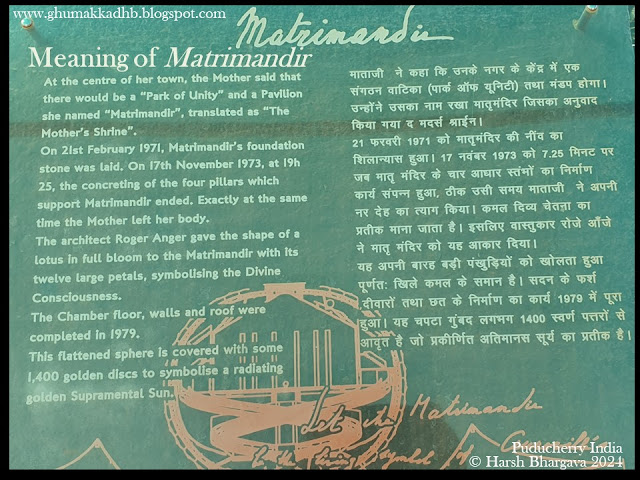 www.ghumakkadhb.blogspot.com
Matrimandir
Meaning of Matrimandir
At the centre of her town, the Mother said that
there would be a “Park of Unity” and a Pavilion
she named “Matrimandir”, translated as “The
Mother's Shrine”.
On 21st February 1971, Matrimandir's foundation
stone was laid. On 17th November 1973, at 19h
25, the concreting of the four pillars which
support Matrimandir ended. Exactly at the same
time the Mother left her body.
The architect Roger Anger gave the shape of a
lotus in full bloom to the Matrimandir with its
twelve large petals, symbolising the Divine
Consciousness.
The Chamber floor, walls and roof were
completed in 1979.
This flattened sphere is covered with some
1,400 golden discs to symbolise a radiating
golden Supramental Sun.
माताजी ने कहा कि उनके नगर के केंद्र में एक
संगठन वाटिका (पार्क ऑफ यूनिटी) तथा मंडप होगा।
उन्होंने उसका नाम रखा मातृमंदिर जिसका अनुवाद
किया गया द मदर्स श्राईन।
21 फरवरी 1971 को मातृमंदिर की नींव का
शिलान्यास हुआ। 17 नवंबर 1973 को 7.25 मिनट पर
जब मातृ मंदिर के चार आधार स्तंमों का निर्माण
कार्य संपन्न हुआ, ठीक उसी समय माताजी ने अपनी
नर देह का त्याग किया। कमल दिव्य चेतना का
प्रतीक माना जाता है। इसलिए वास्तुकार रोजे आँजे
ने मातृ मंदिर को यह आकार दिया।
यह अपनी बारह बड़ी पंखुड़ियों को खोलता हुआ
पूर्णत: खिले कमल के समान है। सदन के फर्श
दीवारों तथा छत के निर्माण का कार्य 1979 में पूरा
हुआ। यह चपटा गुंबद लगभग 1400 स्वर्ण पत्तरों से
आवृत है जो प्रकीर्णित अतिमानस सूर्य का प्रतीक है।
Let the Matrimandir
be the living symbol of Auroville's
Puducherry India
© Harsh Bhargava 2024